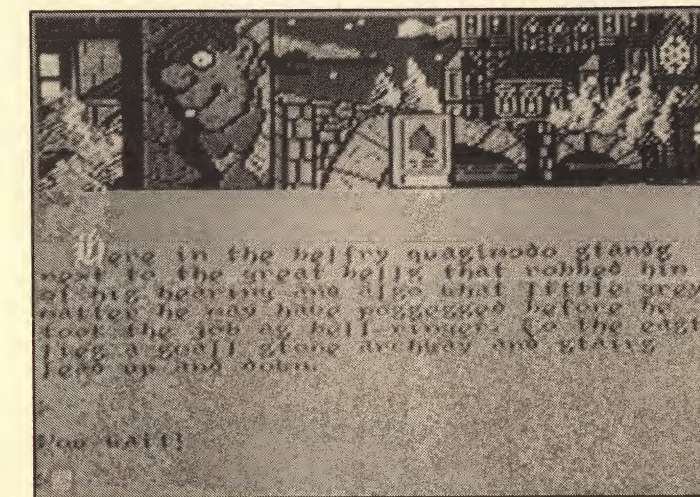 Here in the belfry quasimodo stands
next to the great bells that robbed him
of his hearing and also what little grey
matter he may have possessed before he
took the job as bell ringer. To the east
lies a small stone archway and stairs
lead up and down.
>
You wait!